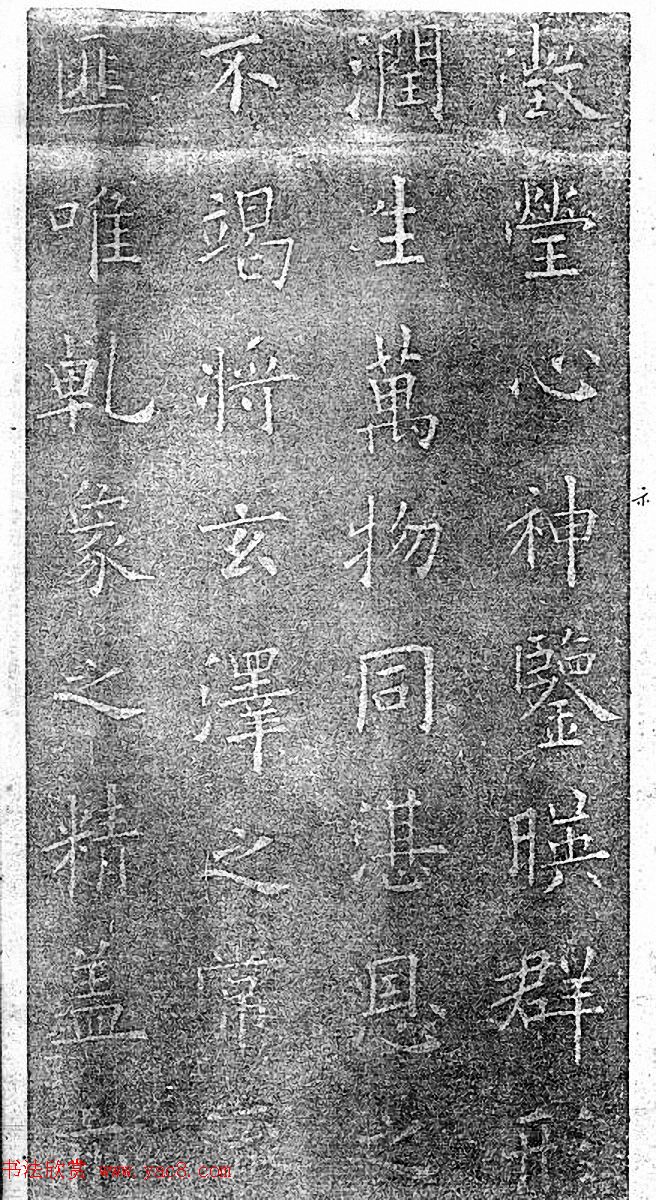 澂瑩心神鑒暎群形
潤生萬物同湛恩之
不竭將玄澤之常
匪唯乹象之精盖
书法欣赏 www.yac8.com